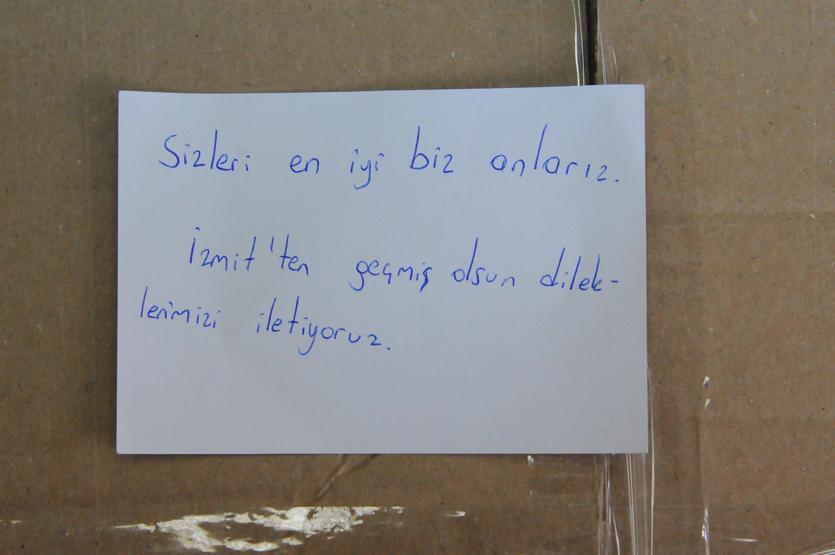 Sizleri en iyi biz anlarız.
İzmit'ten geçmiş olsun dilek-
lerimizi iletiyoruz.